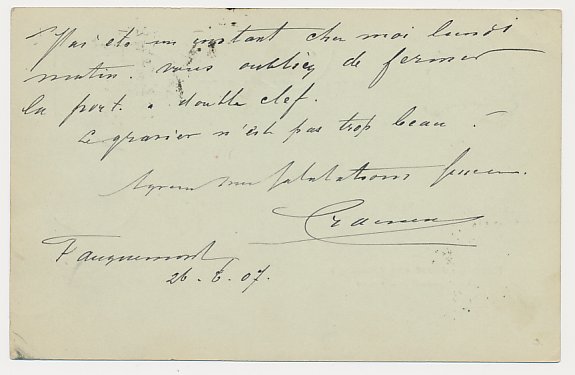 J'ai été un instant chez moi lundi
matin. vous oubliez de fermer
la port. a double clef.
Le grasier n'est pas trop beau. –
salutations
Fauquemont,
26. 6. 07.